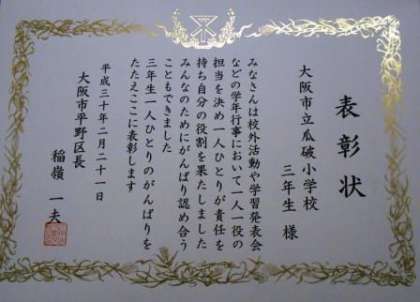 表彰状
大阪市立瓜破小学校
三年生 様
みなさんは校外活動や学習発表会
などの学年行事において一人一役の
担当を決め一人ひとりが責任を
持ち自分の役割を果たしました
みんなのためにがんばり認め合う
こともできました
三年生一人ひとりのがんばりを
たたえここに表彰します
平成三十年二月二十一日
大阪市平野区長
稲嶺 一夫